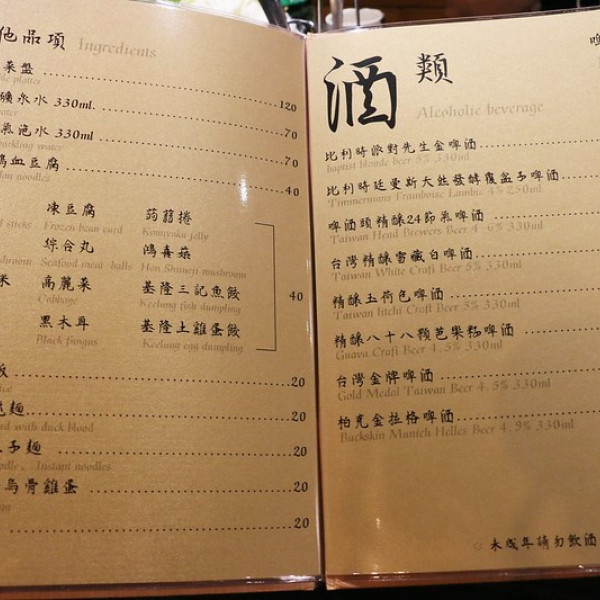 他品項 Ingredients
菜盤 120
礦泉水 330ml. 70
氣泡水 330ml 70
鴨血豆腐 40
凍豆腐 蒟蒻捲
Frozen bean curd Konnyaku jelly
綜合丸 鴻喜菇
Seafood meat balls Hon Shimeji mushroom
米 高麗菜 基隆三記魚餃
Cabbage Keelung fish dumpling
40
黑木耳 基隆土雞蛋餃
Black fungus Keelung egg dumpling
飯 20
麵 20
with duck blood
子麵 20
Instant noodles
烏骨雞蛋 20
20
酒類
Alcoholic beverage
比利時派對先生金啤酒
baptist blonde beer 5% 330ml
比利時廷曼斯天然發酵覆盆子啤酒
Timmermans Framboise Lambic 4% 250ml
啤酒頭精釀24節氣啤酒
Taiwan Head Brewers Beer 4-6% 330ml
台灣精釀雪藏白啤酒
Taiwan White Craft Beer 5% 330ml
精釀玉荷包啤酒
Taiwan litchi Craft Beer 5% 330ml
精釀八十八顆芭樂籽啤酒
Guava Craft Beer 4.5% 330ml
台灣金牌啤酒
Gold Medal Taiwan Beer 4.5% 330ml
柏克金拉格啤酒
Buckskin Munich Helles Beer 4.9% 330ml
☆ 未成年請勿飲酒